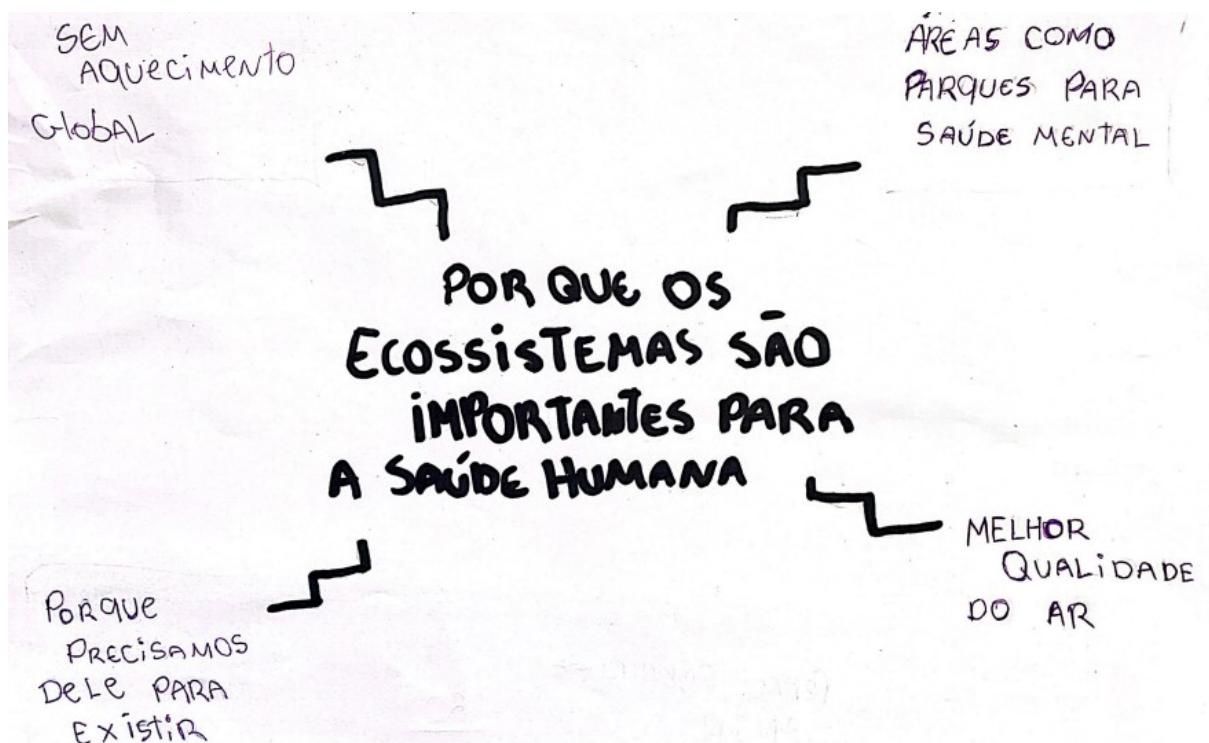 SEM
AQUECIMENTO
GLOBAL
ÁREAS COMO
PARQUES PARA
SAÚDE MENTAL
POR QUE OS
ECOSSISTEMAS SÃO
IMPORTANTES PARA
A SAÚDE HUMANA
MELHOR
QUALIDADE
DO AR
PORQUE
PRECISAMOS
DELE PARA
EXISTIR